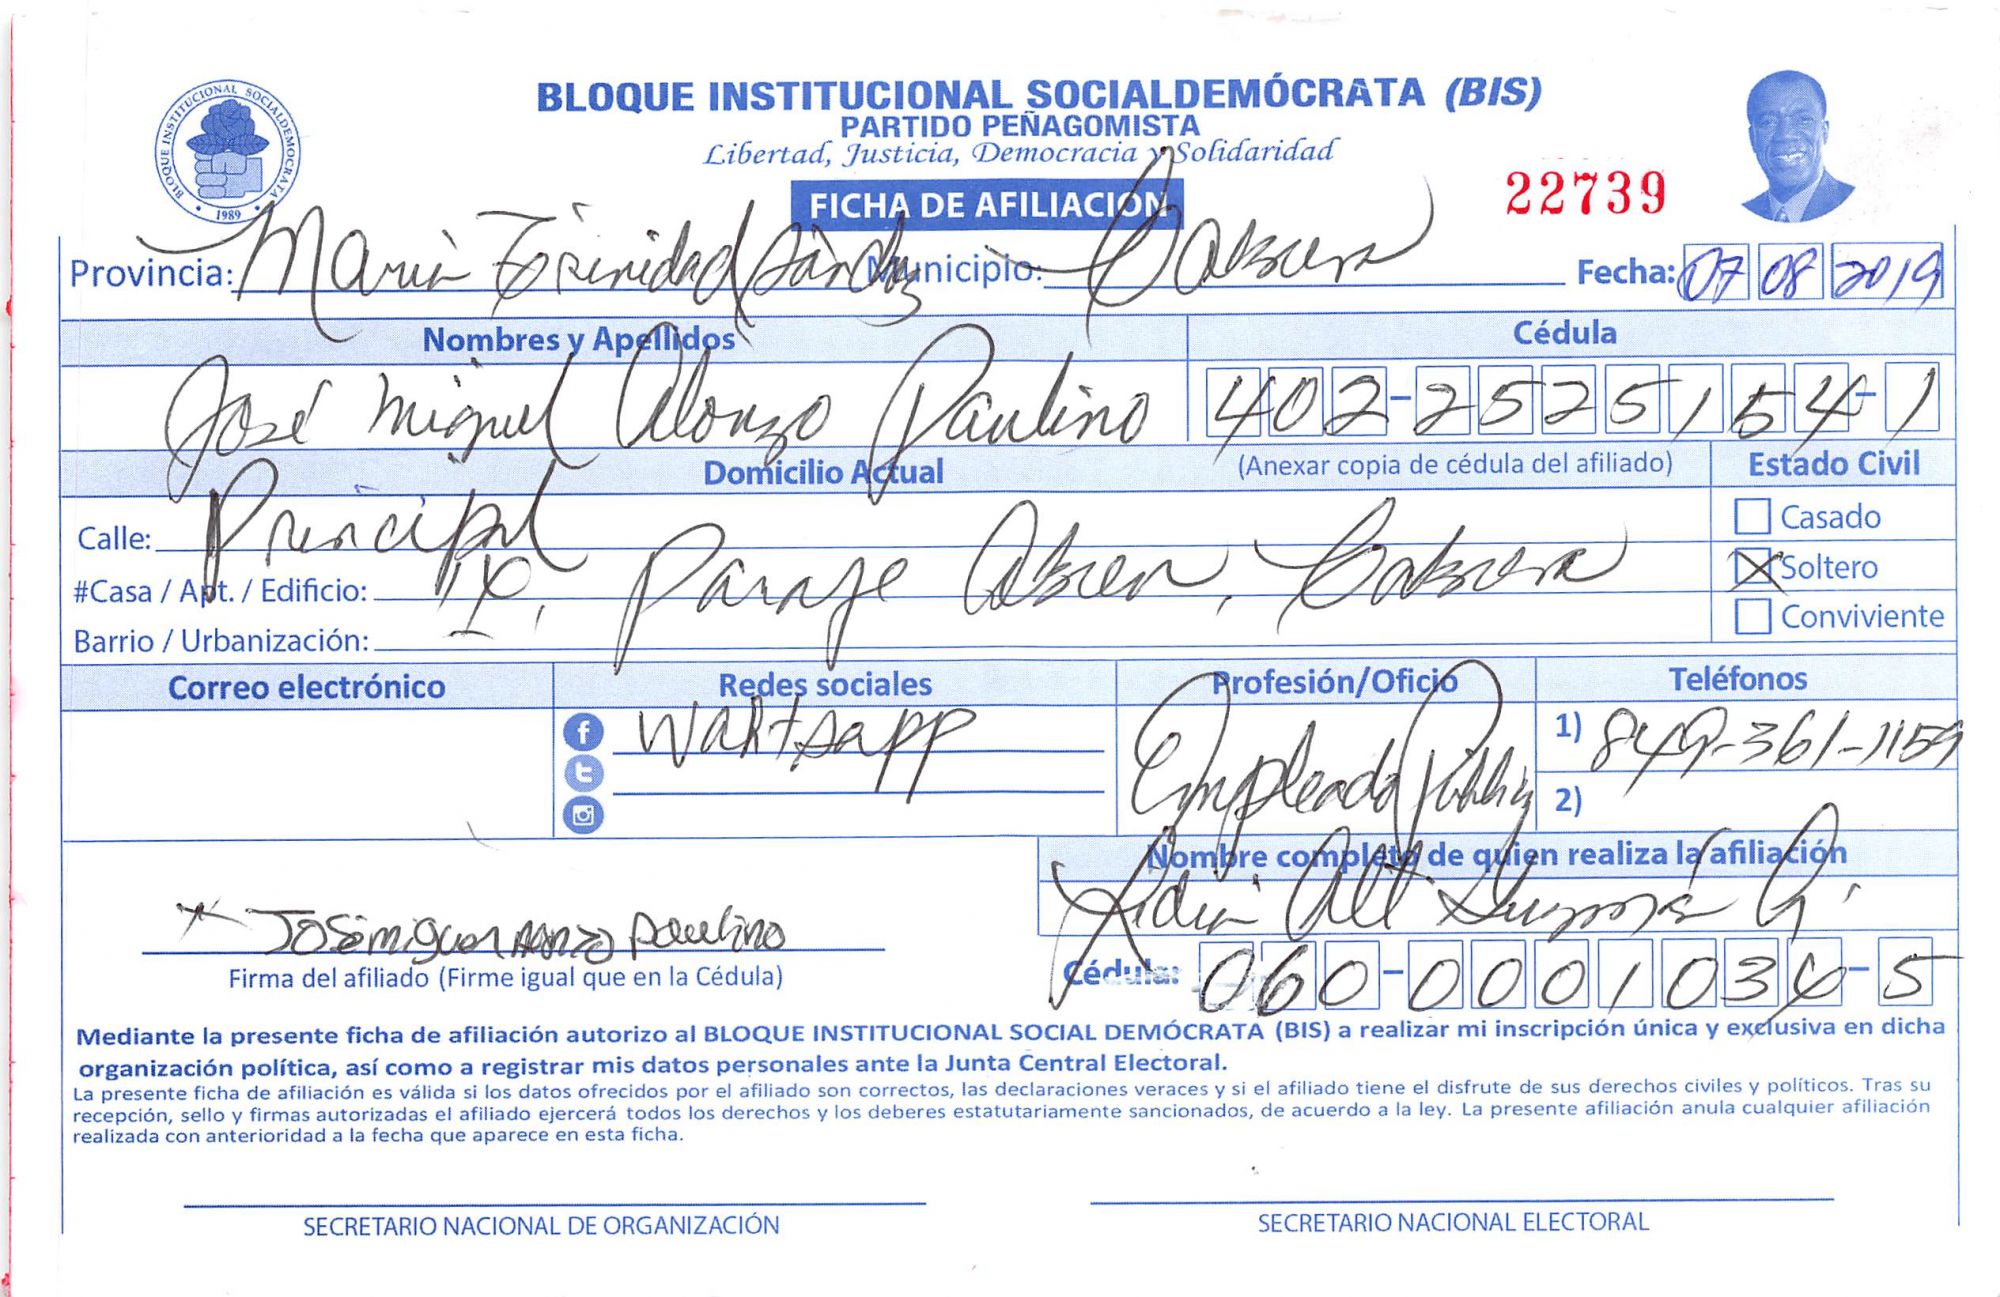 BLOQUE INSTITUCIONAL SOCIALDEMÓCRATA (BIS)
PARTIDO PEÑAGOMISTA
Libertad, Justicia, Democracia y Solidaridad
BLOQUE INSTITUCIONAL SOCIALDEMOCRATA
1989
FICHA DE AFILIACIÓN
22739
Provincia: Maria Trinidad Sánchz Municipio: Cabrera Fecha: 07 08 2019
Nombres y Apellidos Cédula
José Miguel Alonzo Paulino 402-2525154-1
Domicilio Actual (Anexar copia de cédula del afiliado) Estado Civil
Calle: Principal
Casado
#Casa / Apt. / Edificio: Paraje Abreu, Cabrera
Soltero
Barrio / Urbanización:
Conviviente
Correo electrónico Redes sociales Profesión/Oficio Teléfonos
Wahtsapp Empleado 1) 849-361-1159
2)
Nombre completo de quien realiza la afiliación
Alt Guzmán G.
Jose miguel Alonzo paulino
Firma del afiliado (Firme igual que en la Cédula)
Cédula: 060-0001034-5
Mediante la presente ficha de afiliación autorizo al BLOQUE INSTITUCIONAL SOCIAL DEMÓCRATA (BIS) a realizar mi inscripción única y exclusiva en dicha
organización política, así como a registrar mis datos personales ante la Junta Central Electoral.
La presente ficha de afiliación es válida si los datos ofrecidos por el afiliado son correctos, las declaraciones veraces y si el afiliado tiene el disfrute de sus derechos civiles y políticos. Tras su
recepción, sello y firmas autorizadas el afiliado ejercerá todos los derechos y los deberes estatutariamente sancionados, de acuerdo a la ley. La presente afiliación anula cualquier afiliación
realizada con anterioridad a la fecha que aparece en esta ficha.
SECRETARIO NACIONAL DE ORGANIZACIÓN SECRETARIO NACIONAL ELECTORAL